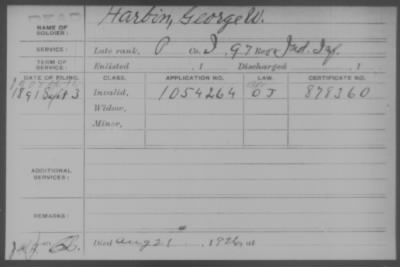 NAME OF SOLDIER: Harbin, George W.
SERVICE: Late rank, P Co. I, 97 Reg't Ind. Inf.
TERM OF SERVICE: Enlisted , 1 Discharged , 1
DATE OF FILING. CLASS. APPLICATION NO. LAW. CERTIFICATE NO.
1891 Sept 3 Invalid, 1054264 878360
Widow,
Minor,
ADDITIONAL SERVICES:
REMARKS:
Died Aug 21 , 1926, at